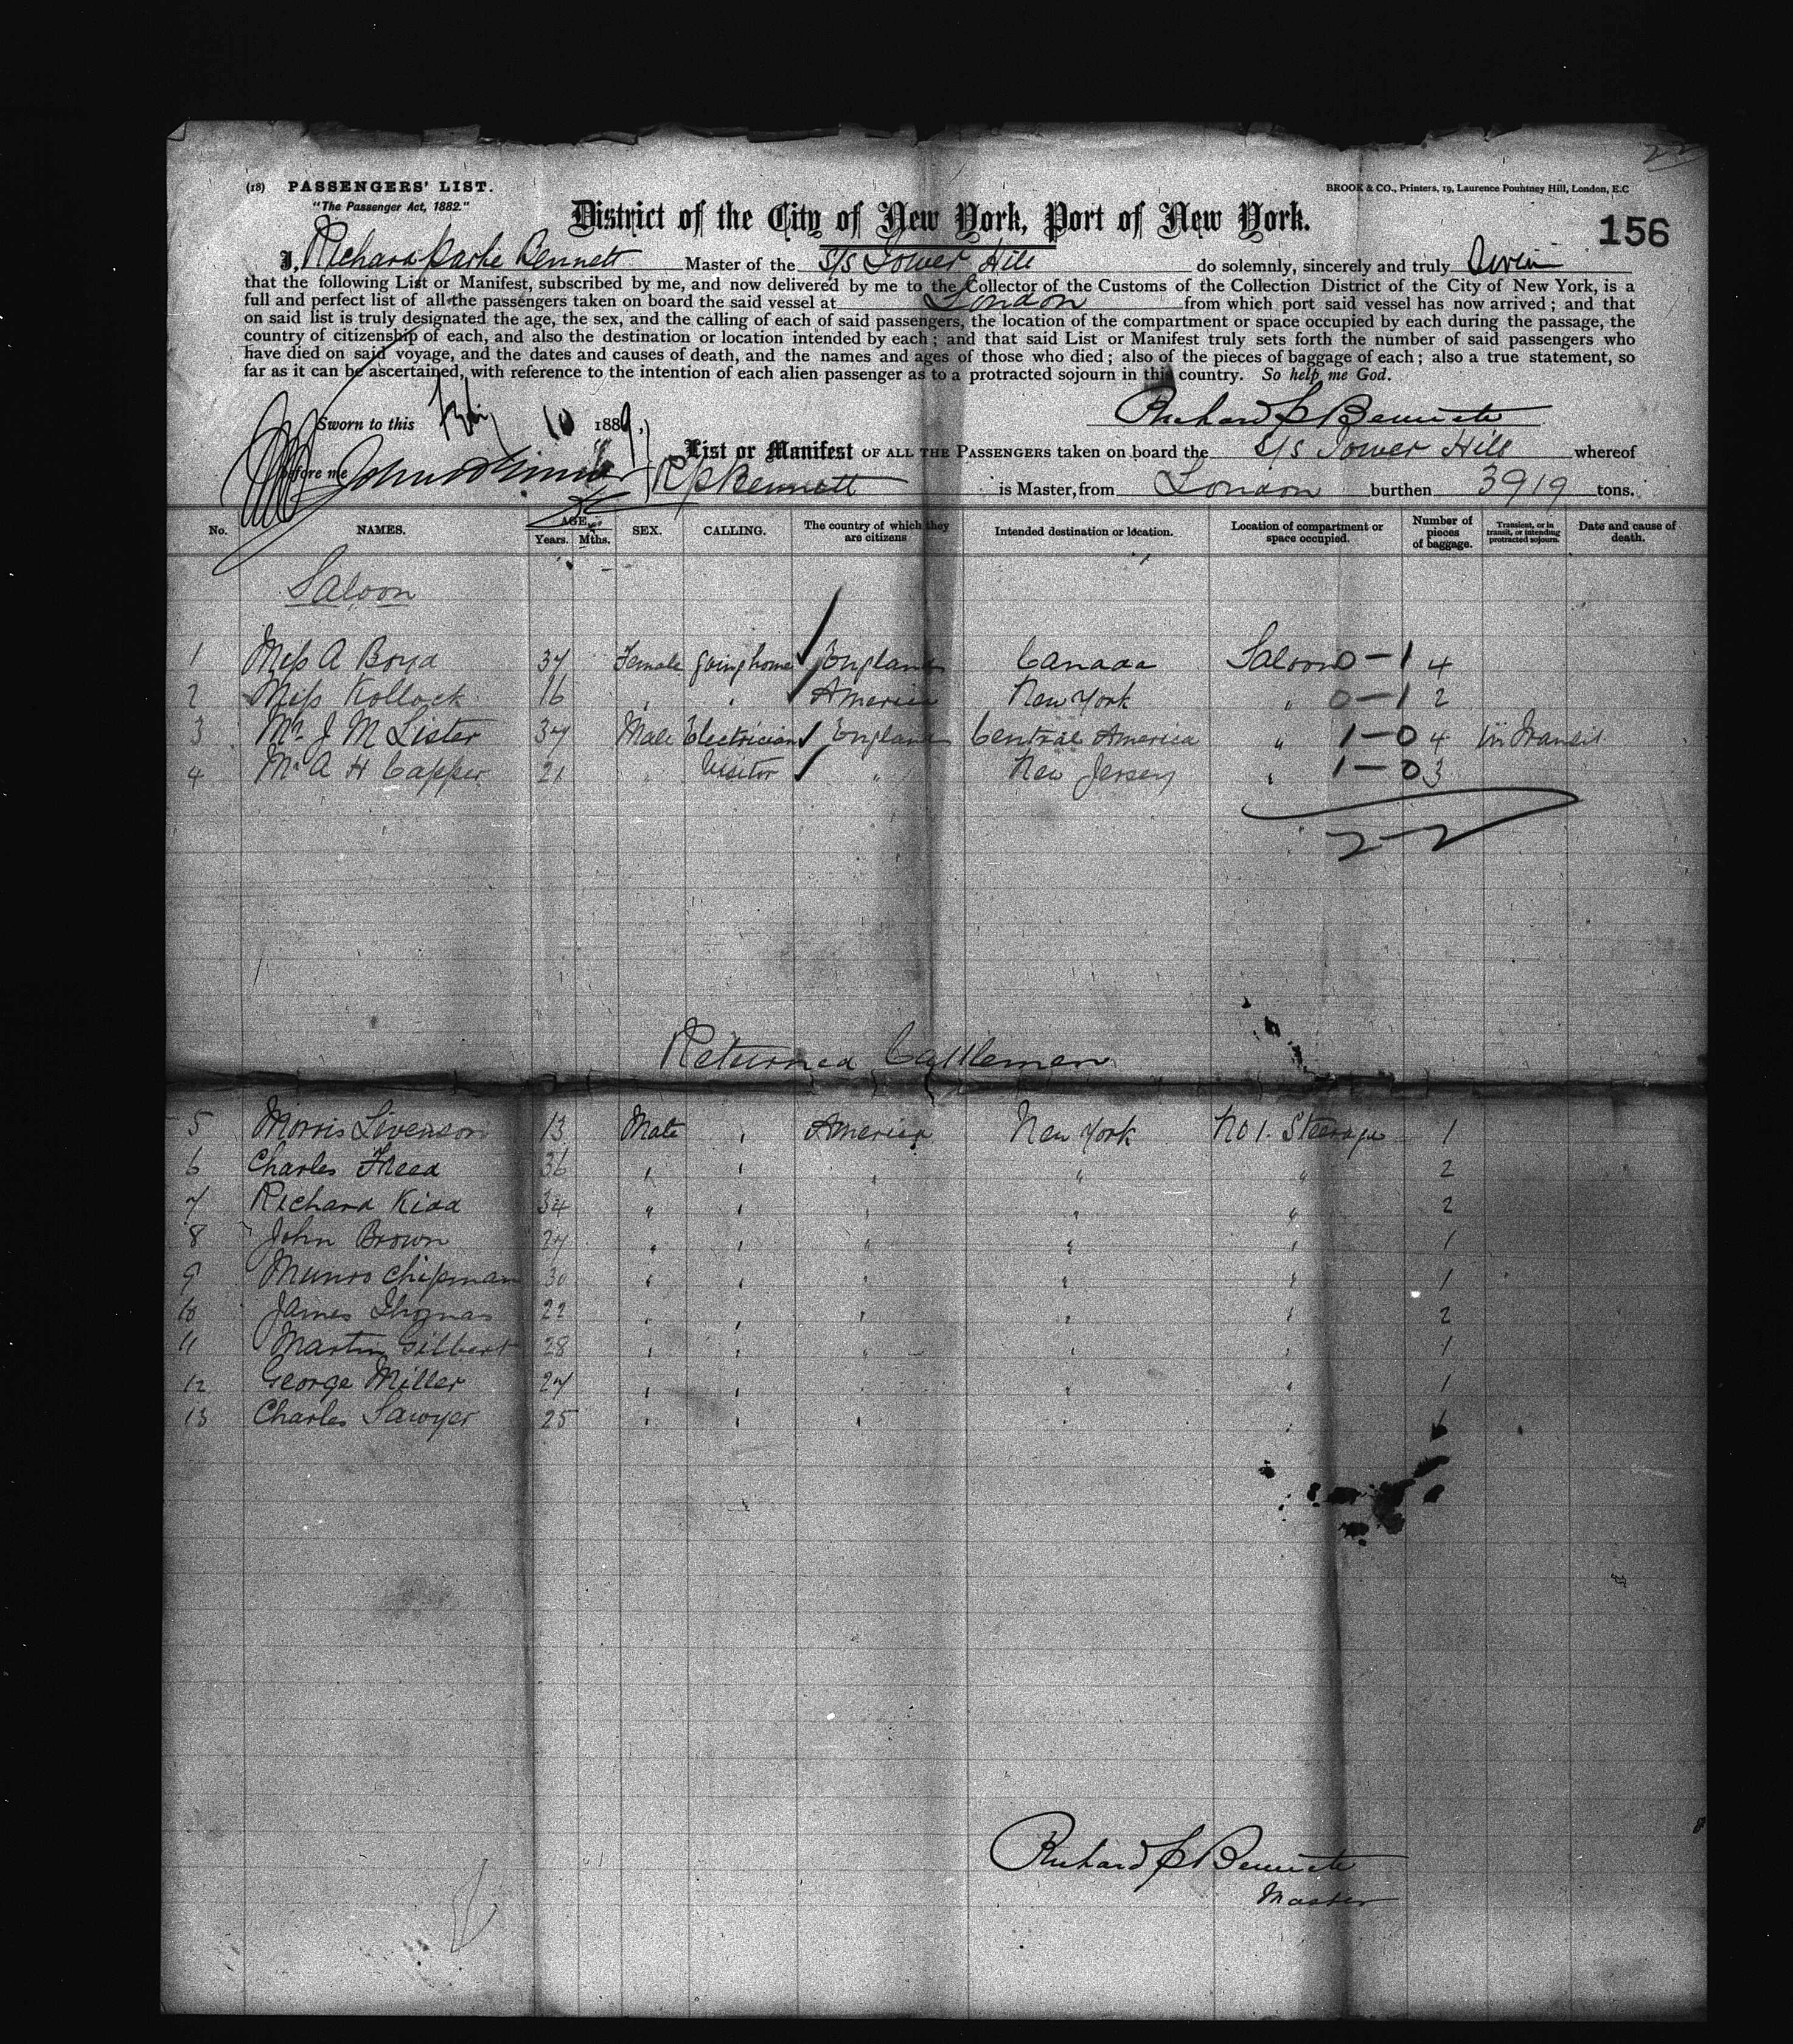 (18) PASSENGERS' LIST.
"The Passenger Act, 1882."
BROOK & CO., Printers, 19, Laurence Pountney Hill, London, E.C
District of the City of New York, Port of New York.
156
I, Richard Parke Bennett Master of the S/S Tower Hill do solemnly, sincerely and truly swear
that the following List or Manifest, subscribed by me, and now delivered by me to the Collector of the Customs of the Collection District of the City of New York, is a
full and perfect list of all the passengers taken on board the said vessel at London from which port said vessel has now arrived; and that
on said list is truly designated the age, the sex, and the calling of each of said passengers, the location of the compartment or space occupied by each during the passage, the
country of citizenship of each, and also the destination or location intended by each; and that said List or Manifest truly sets forth the number of said passengers who
have died on said voyage, and the dates and causes of death, and the names and ages of those who died; also of the pieces of baggage of each; also a true statement, so
far as it can be ascertained, with reference to the intention of each alien passenger as to a protracted sojourn in this country. So help me God.
Sworn to this 10 1889,
Richard P Bennett
before me
List or Manifest OF ALL THE PASSENGERS taken on board the S/S Tower Hill whereof
R P Bennett is Master, from London burthen 3919 tons.
No. NAMES. AGE. Years. Mths. SEX. CALLING. The country of which they are citizens Intended destination or location. Location of compartment or space occupied. Number of pieces of baggage. Transient, or in transit, or intending protracted sojourn. Date and cause of death.
Saloon
1 Miss A Boyd 37 Female going home England Canada Saloon 0-1 4
2 Miss Kollock 16 " " America New York " 0-1 2
3 Mr J M Lister 37 Male Electrician England Central America " 1-0 4 in Transit
4 Mr A H Capper 21 " Visitor " New Jersey " 1-0 3
2-2
Returned Cattlemen
5 Morris Livenson 13 Male " America New York No 1. Steerage 1
6 Charles Freed 36 " " " " " 2
7 Richard Kidd 34 " " " " " 2
8 John Brown 27 " " " " " 1
9 Munro Chipman 30 " " " " " 1
10 James Thomas 22 " " " " " 2
11 Martin Gilbert 28 " " " " " 1
12 George Miller 27 " " " " " 1
13 Charles Sawyer 25 " " " " " 1
Richard P Bennett
Master